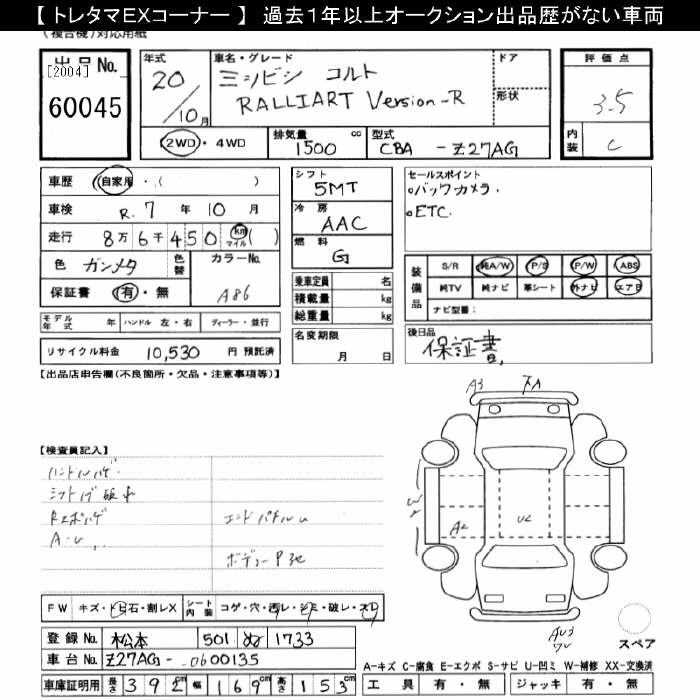 【 トレタマEXコーナー 】 過去1年以上オークション出品歴がない車両
(複合機)対応用紙
出品No.
[2004]
60045
年式 20/10月
車名・グレード ミツビシ コルト
RALLIART Version-R
ドア
形状
評価点 3.5
内装 C
2WD・4WD
排気量 1500 cc
型式 CBA - Z27AG
車歴 自家用・( )
車検 R. 7 年 10 月
走行 8万6千450 km マイル ( )
色 ガンメタ 色替 カラーNo. A86
保証書 有・無
シフト 5MT
冷房 AAC
燃料 G
乗車定員 名
積載量 kg
総重量 kg
セールスポイント
・バックカメラ.
・ETC.
装備品 S/R 純A/W P/S P/W ABS
純TV 純ナビ 革シート 外ナビ エアB
ナビ型番:
モデル年式 年 ハンドル 左・右 ディーラー・並行
リサイクル料金 10,530 円 預託済
名変期限 月 日
後日品 保証書,
【出品店申告欄(不良箇所・欠品・注意事項等)】
【検査員記入】
A3
A2
U2
W2
スペア
FW キズ・トビ石・割レX シート内装 コゲ・穴・汚レ・シミ・破レ・スレ
登録No. 松本 501 ぬ 1733
車台No. Z27AG - 0600135
車庫証明用 長さ 392cm 幅 169cm 高さ 153cm
A-キズ C-腐食 E-エクボ S-サビ U-凹ミ W-補修 XX-交換済
工具 有・無 ジャッキ 有・無